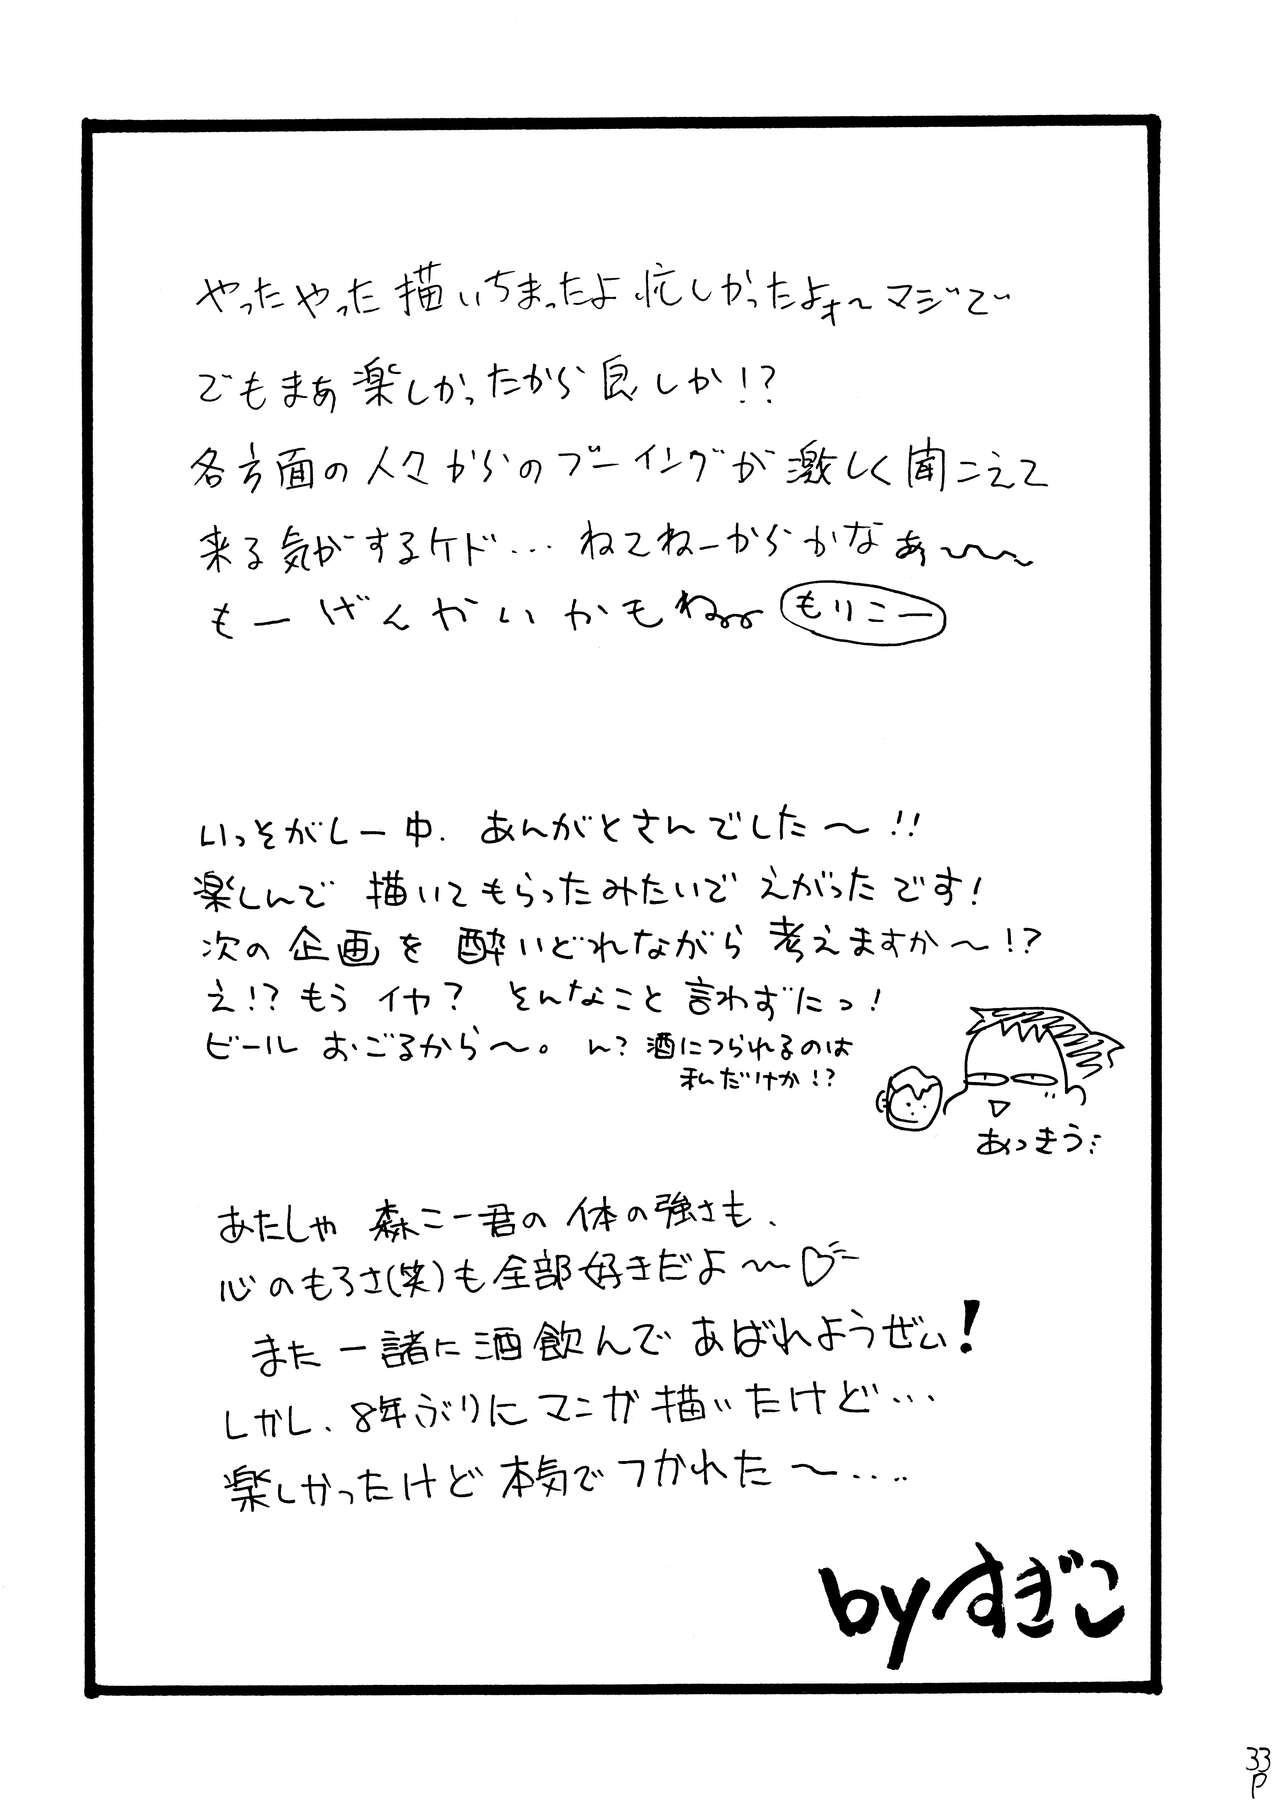 やったやった描いちまったよ忙しかったよォ〜マジで
でもまぁ楽しかったから良しか!?
各方面の人々からのブーイングが激しく聞こえて
来る気がするケド... ねてねーからかなぁ〜〜〜
もーげんかいかもね もりこー
いっそがしー中、あんがとさんでした〜!!
楽しんで描いてもらったみたいでえがったです!
次の企画を酔いどれながら考えますか〜!?
え!?もうイヤ?そんなこと言わずにっ!
ビールおごるから〜。ん?酒につられるのは
私だけか!?
あっきう
あたしゃ森こー君の体の強さも、
心のもろさ(笑)も全部好きだよ〜♡
また一諸に酒飲んであばれようぜぃ!
しかし、8年ぶりにマンガ描いたけど...
楽しかったけど本気でつかれた〜....
byすぎこ
33P